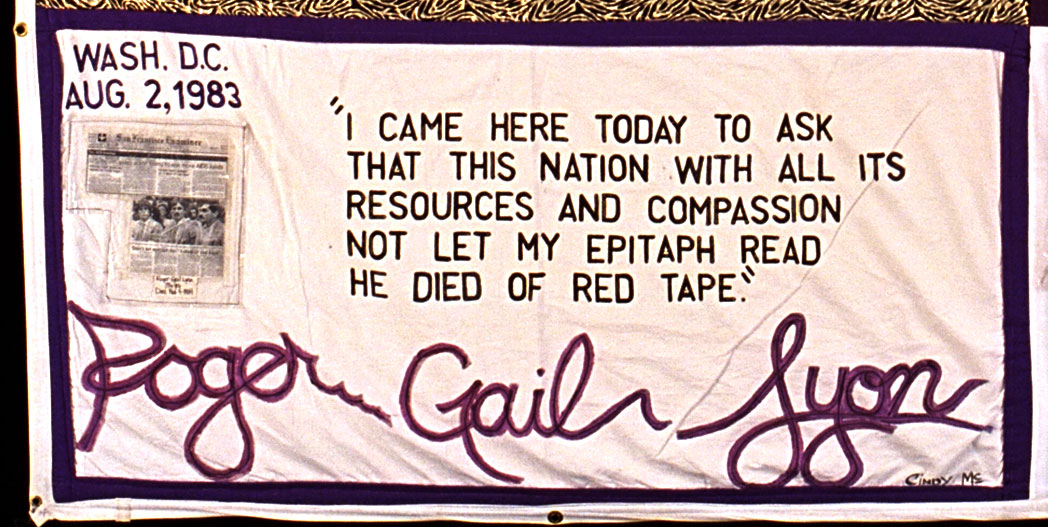 WASH. D.C.
AUG. 2, 1983
San Francisco Examiner
"I CAME HERE TODAY TO ASK
THAT THIS NATION WITH ALL ITS
RESOURCES AND COMPASSION
NOT LET MY EPITAPH READ
HE DIED OF RED TAPE."
Roger Gail Lyon
CINDY Mc